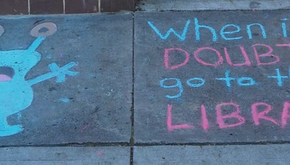 When i
DOUBT
go to t
LIBRA